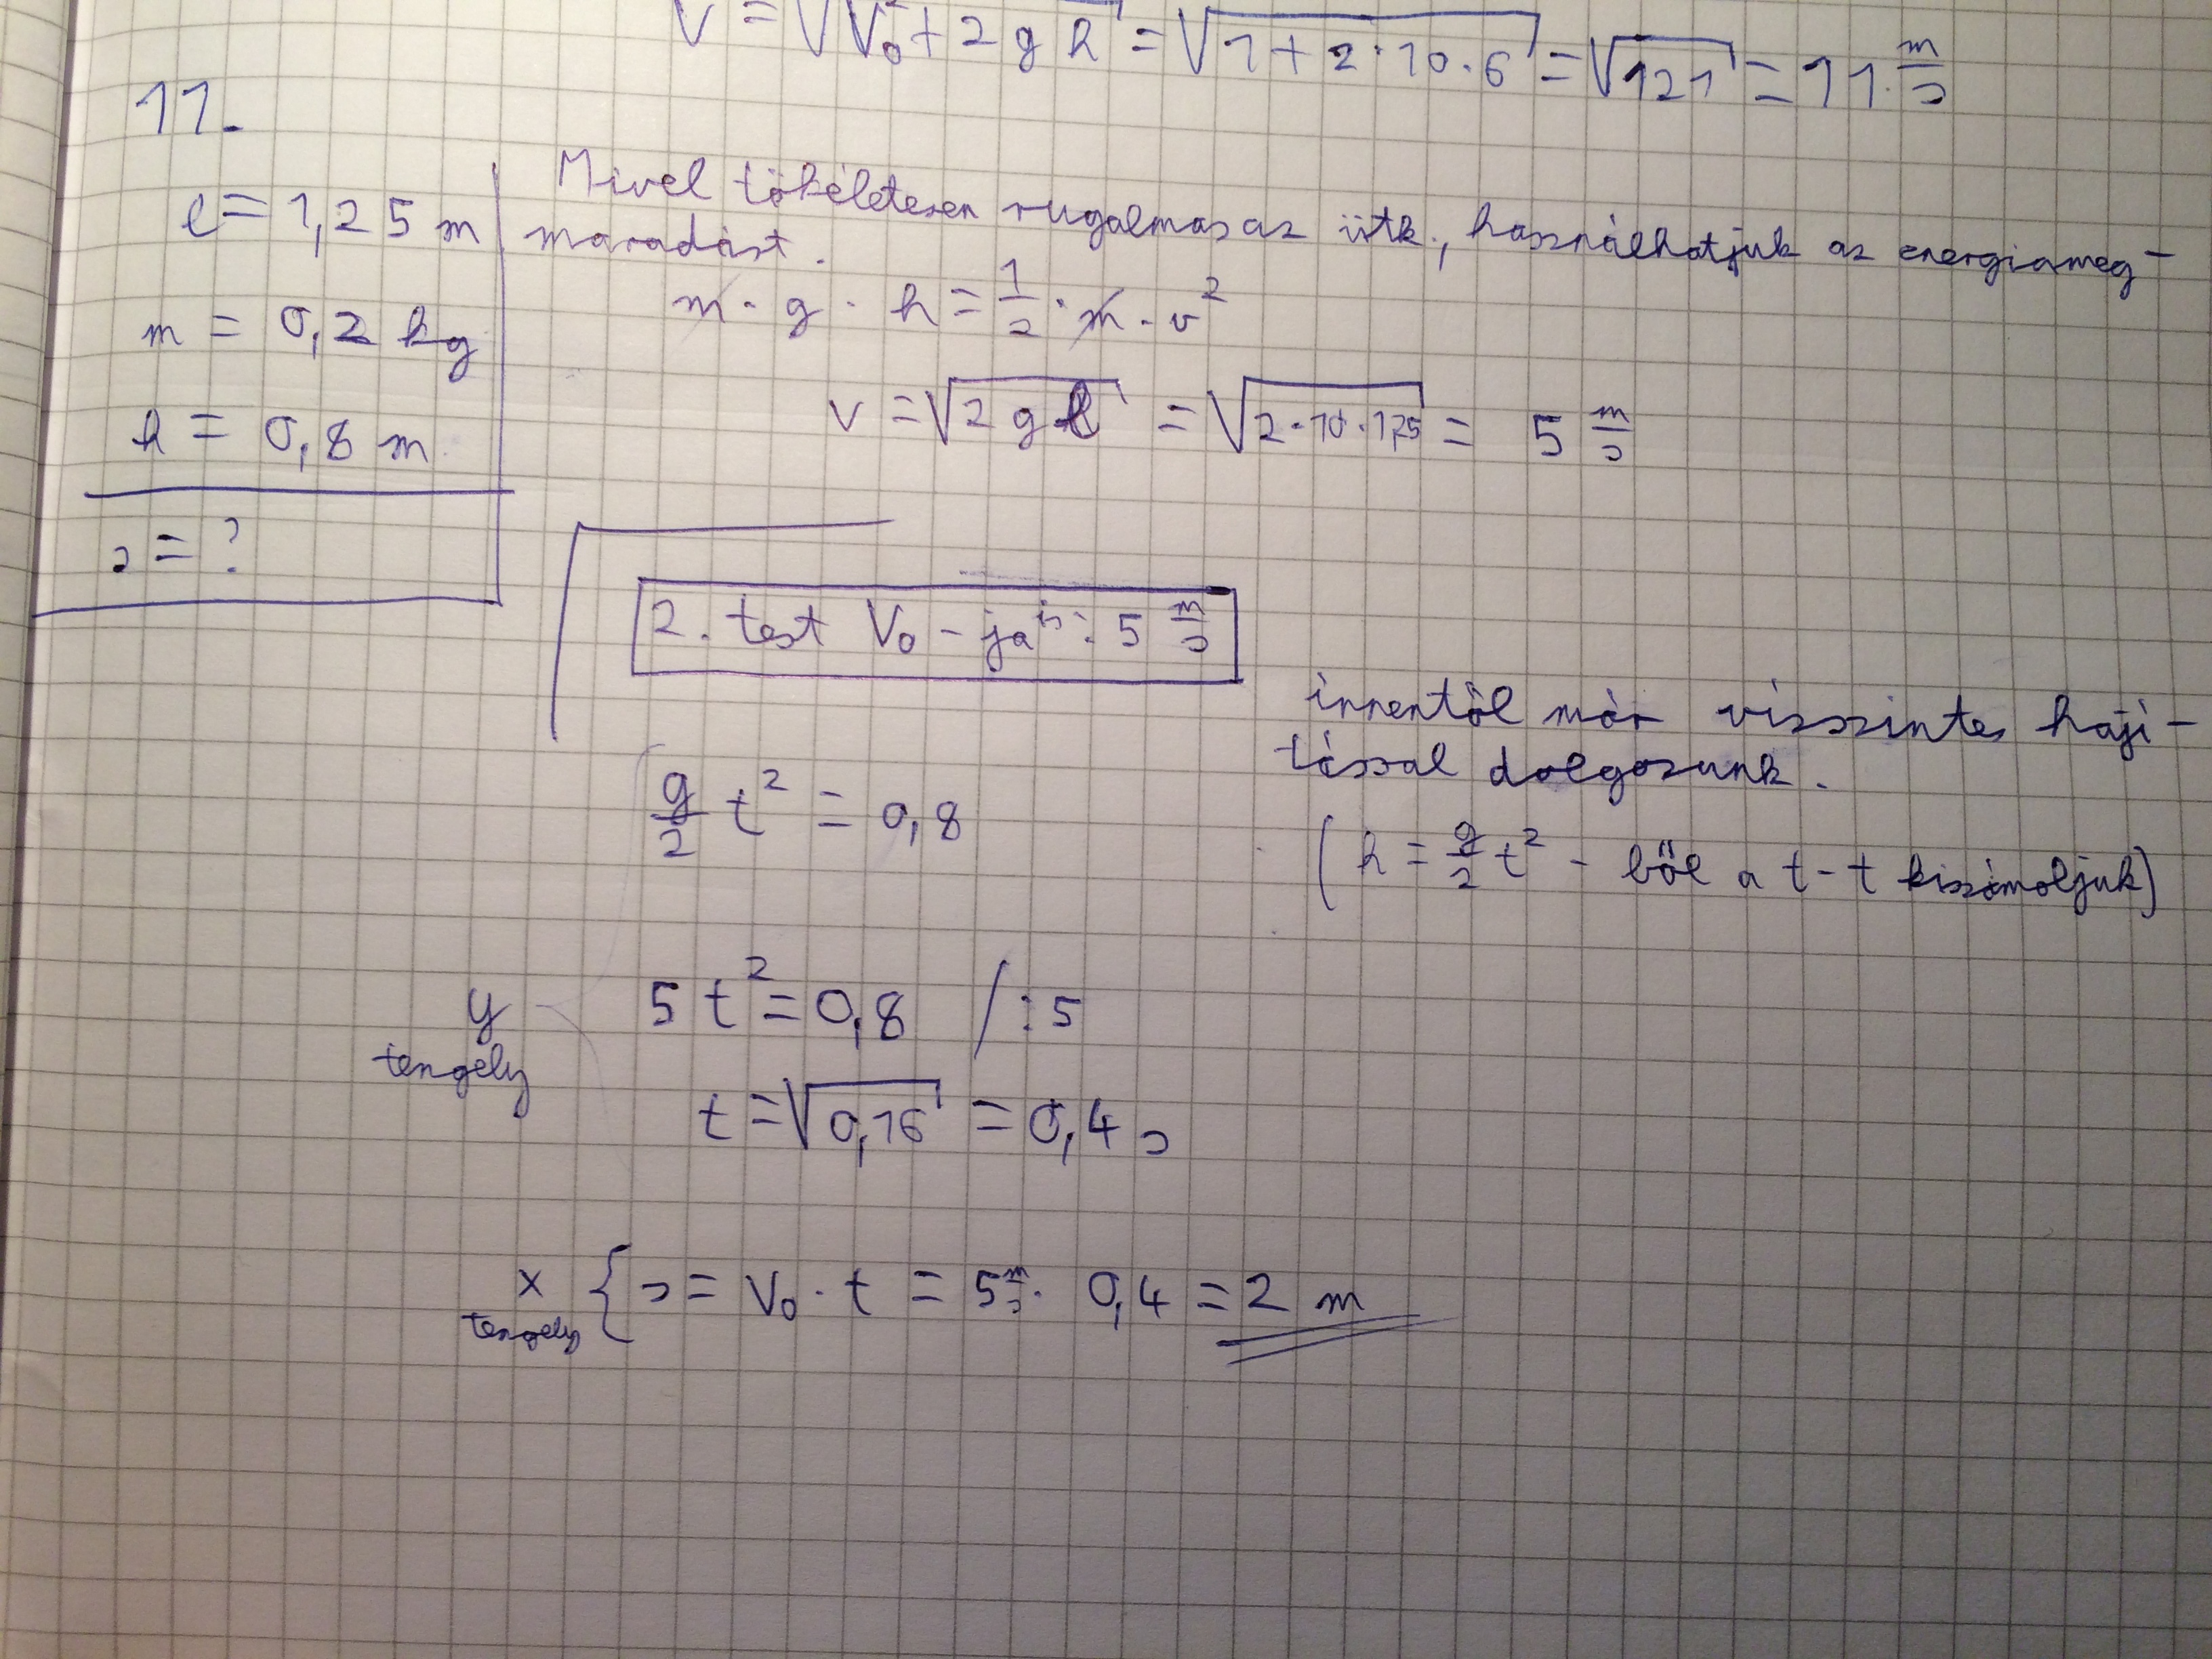 V = √V₀² + 2 g h = √1 + 2 · 10 · 6 = √121 = 11 m/s
11.
l = 1,25 m
m = 0,2 kg
h = 0,8 m
s = ?
Mivel tökéletesen rugalmas az ütk., használhatjuk az energiameg-
maradást.
m · g · h = 1/2 · m · v²
v = √2 g l = √2 · 10 · 1,25 = 5 m/s
2. test V₀ - ja is : 5 m/s
innentől már vízszintes hají-
tással dolgozunk.
g/2 t² = 0,8
(h = g/2 t² - ből a t - t kiszámoljuk)
y tengely
5 t² = 0,8 / : 5
t = √0,16 = 0,4 s
x tengely { s = V₀ · t = 5 m/s · 0,4 = 2 m